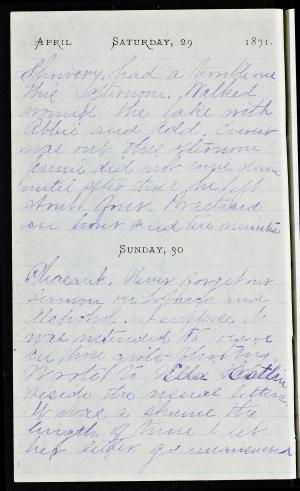 APRIL SATURDAY, 29 1871.
Showery, had a terrible one
this afternoon. Walked
around the lake with
Abbie and Add.
was out this afternoon
Jennie did not come down
until after time he left
about four. Practiced
an hour and ten minutes
SUNDAY, 30
Pleasant. Never forget our
sermon on tobacco and
Alcohol. I suppose it
was intended to
on those
Wrote to Ella Catlin
beside the usual letters.
It was a shame the
length of time I let
her letter go unanswered